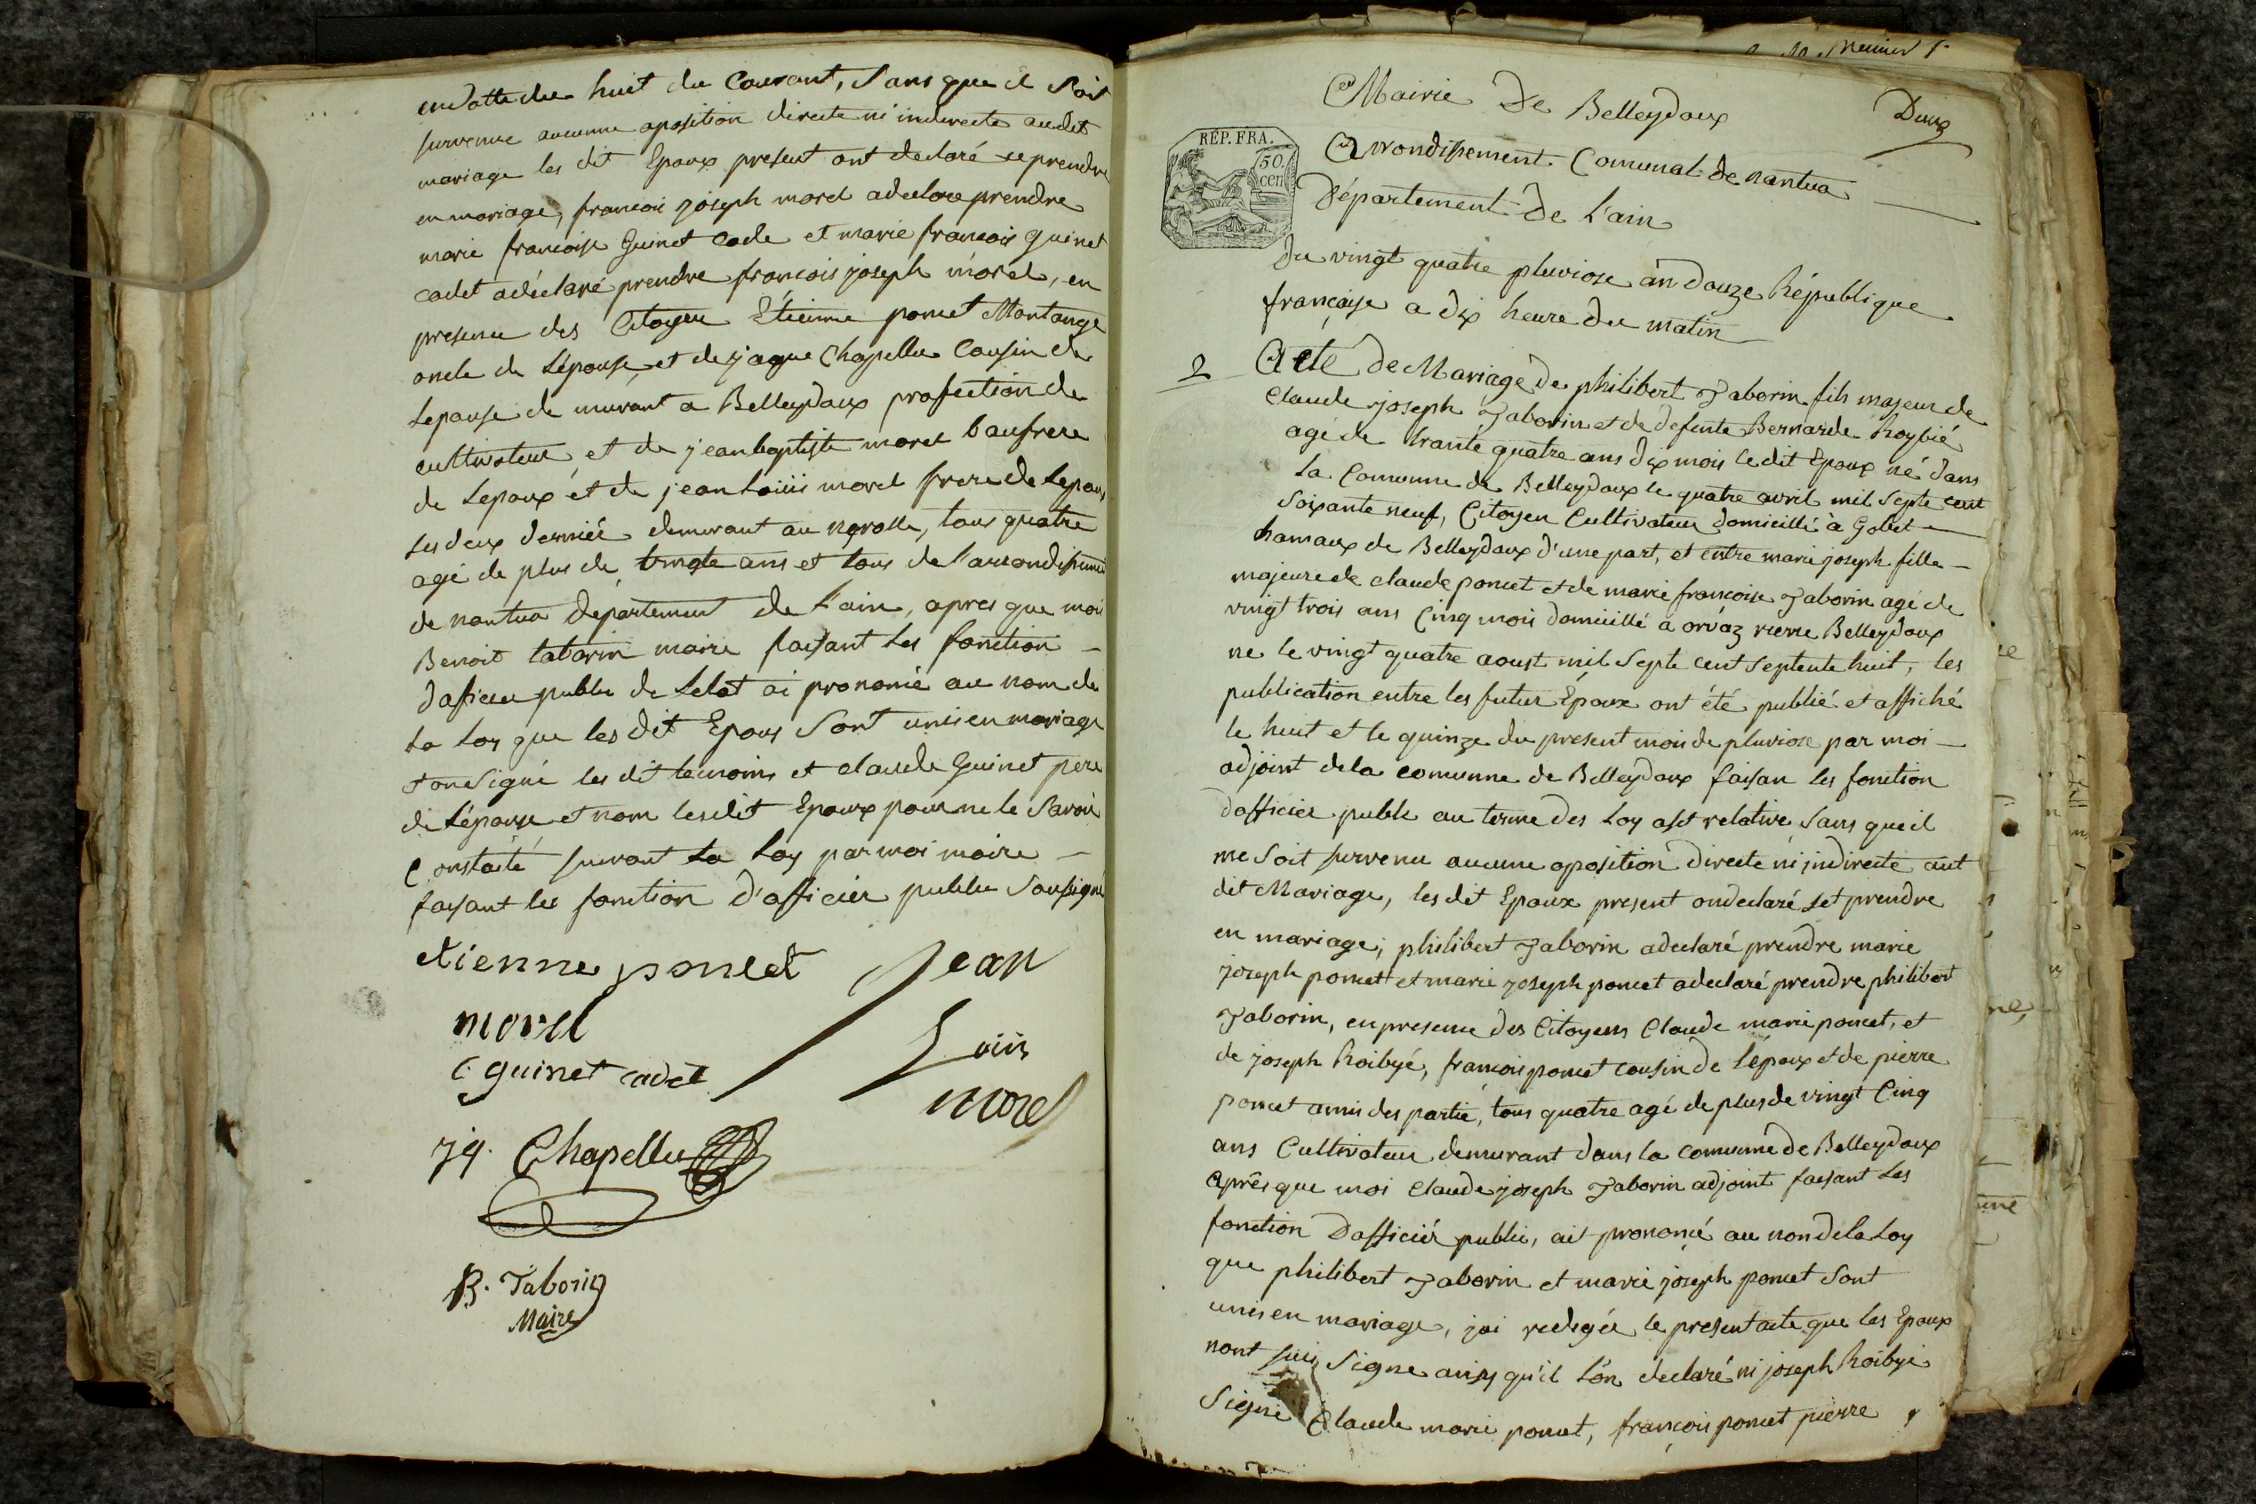 en datte du huit du Courant, Sans que il Soit
survenue aucunne oposition directe ni indirecte audit
mariage les dit Epoux present ont declaré se prendre
en mariage, francois joseph morel a declare prendre
marie francoise Guinet Cade et marie francois guinet
cadet a déclaré prendre francois joseph morel, en
presence des Citoyen Etienne poncet Montange
oncle de Lépouse, et de jaque Chapellu Cousin de
Lepouse de murant a Belleydoux profection de
cultivateur, et de jean baptiste morel baufrere
de Lepoux et de jean Loiiis morel frere de Lepoux
Les deux derniée demurant au, tous quatre
agé de plus de vingte ans et tous de l'arrondissement
de nantua departement de L'ain, apres que moi
Benoit taborin maire faisant les fonction —
d'aficier public de Letat ai prononcé au nom de
La Loy que les dit Epous Sont unis en mariage
et on Signé les dit temoins et claude Guinet pere
de Lépouse et nom les dit Epoux pour ne le Savoir
Constaité suivant La Loy par moi maire —
faisant les fonction d'afficier public Sousigné
etienne poncet Jean
morel
Loiiis
C. guinet cadet
morel
jq. Chapellu
B. Taborin
Maire
Mairie De Belleydoux
Douz
REP. FRA.
50
cen
Arrondissement Comunal de nantua
Département De L'ain
Du vingt quatre pluviose an Douze République
française a dix heure du matin
2 Acte De Mariage De philibert Taborin fils majeur de
Claude joseph Taborin et de defunte Bernarde Roybié
agé de trante quatre ans dix mois le dit Epoux né dans
La Comunne de Belleydoux le quatre avril mil Septe cent
Soixante neuf, Citoyen Cultivateur domicillié à Gobet —
hamaux de Belleydoux d'une part, et entre marie joseph fille —
majeure de claude poncet et de marie francoise Taborin agé de
vingt trois ans Cinq mois domicillé a orvaz riere Belleydoux
ne le vingt quatre aoust mil Septe cent Septente huit, les
publication entre les futur Époux ont été publié et affiché
le huit et le quinze du present mois de pluviose par moi —
adjoint de la comunne de Belleydoux faisan les fonction
d'afficier public au terme des Loy a set relative Sans que il
me Soit survenu aucune oposition directe ni indirecte aut
dit Mariage, les dit Epoux present on declaré Set prendre
en mariage, philibert Taborin a declaré prendre marie
joseph poncet et marie joseph poncet a declaré prendre philibert
Taborin, en presence des Citoyens Claude marie poncet, et
de joseph Roibyé, francois poncet cousin de l'époux et de pierre
poncet amis des partie, tous quatre agé de plus de vingt Cinq
ans Cultivateur demurant dans la comunne de Belleydoux
après que moi Claude joseph Taborin adjoint faisant Les
fonction D'afficiér public, ait prononcé au non de la Loy
que philibert Taborin et marie joseph poncet Sont
unis en mariage, jai redegée le present acte que les Epoux
nont Signe ainsy qu'il L'on declaré ni joseph Roibyé
Signé Claude marie poncet, françois poncet pierre